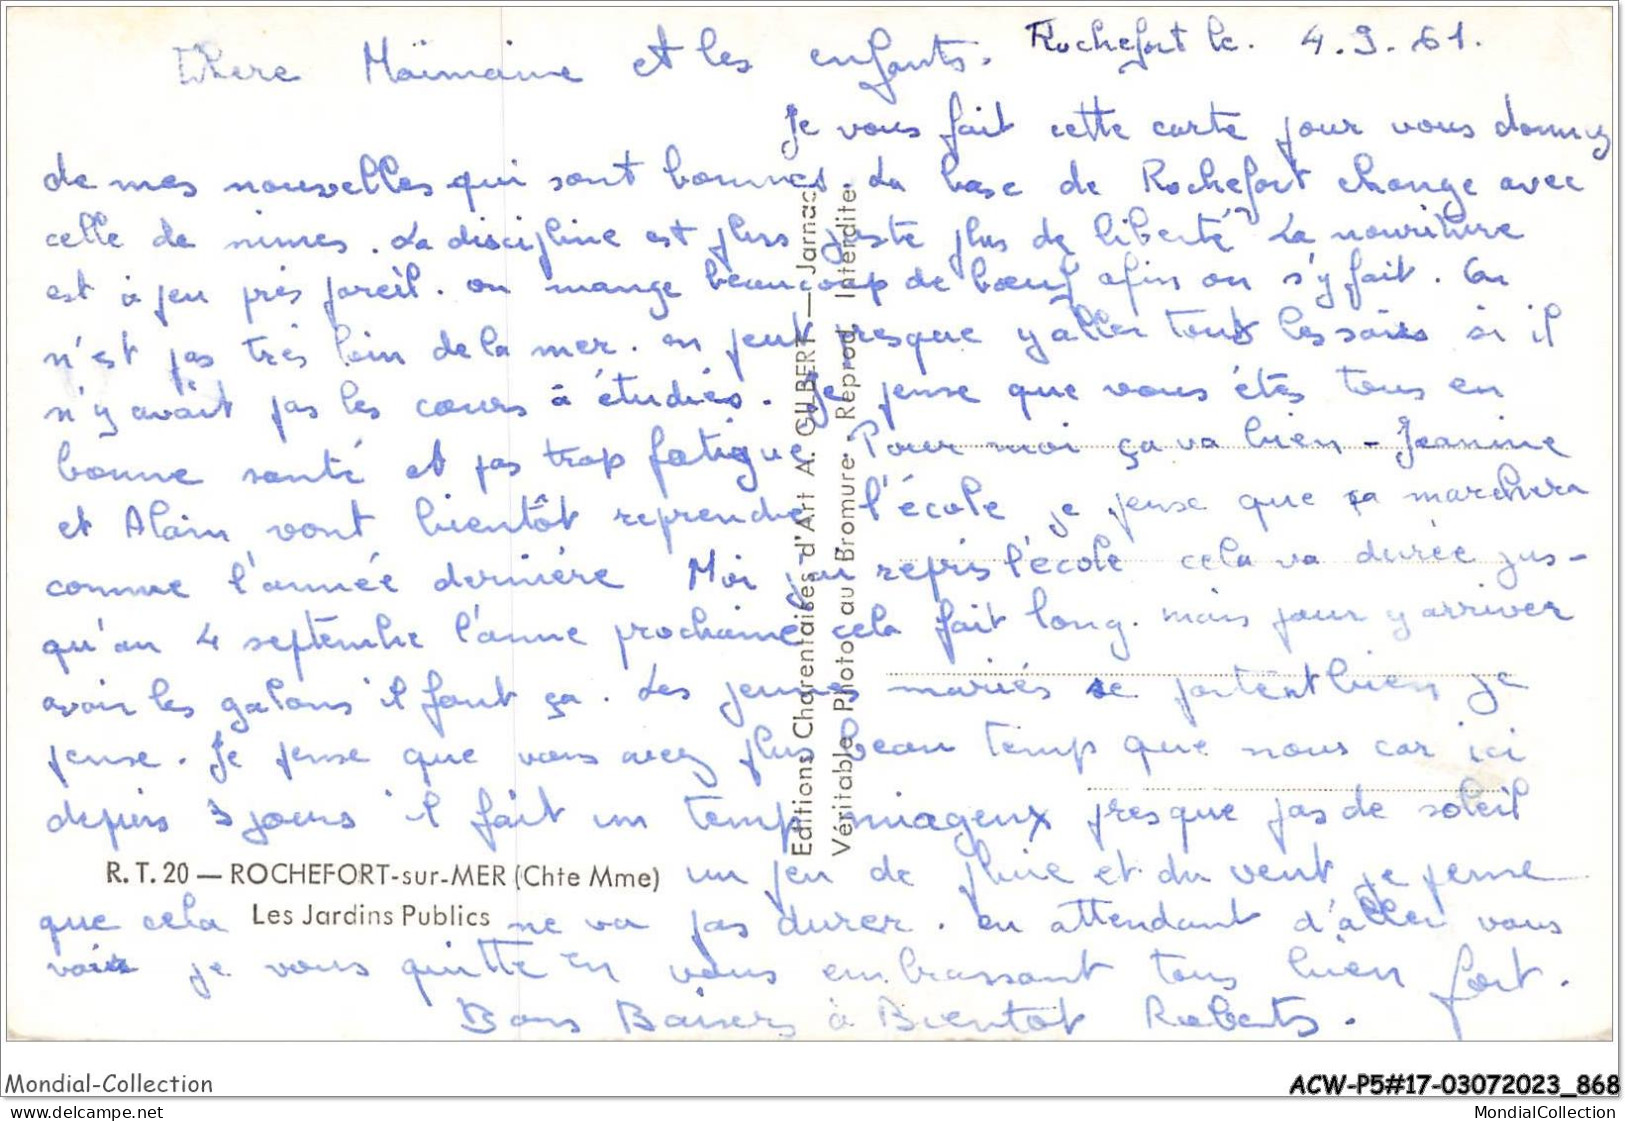 Rochefort le. 4.9.61.
Chere Maïmaine et les enfants.
Je vous fait cette carte pour vous donnez
de mes nouvelles qui sont bonnes. La base de Rochefort change avec
celle de nimes. La discipline est plus juste plus de liberté La nouriture
est à peu près pareil. on mange beaucoup de bœuf afin on s'y fait. On
n'est pas très loin de la mer. on peut presque y aller tous les soirs si il
n'y avait pas les cours à étudiés. Je pense que vous êtes tous en
bonne santé et pas trop fatigue Pour moi ça va bien - Jeanine
et Alain vont bientôt reprendre l'école je pense que sa marchera
comme l'année dernière Moi j'ai repris l'école cela va durée jus-
qu'au 4 septembre l'anne prochaine cela fait long. mais pour y arriver
avoir les galons il faut ça. Les jeunes mariés se portent bien je
pense. Je pense que vous avez plus beau temp que nous car ici
depuis 3 jours il fait un temp nuageux presque pas de soleil
un peu de pluie et du vent je pense
que cela ne va pas durer. en attendant d'aller vous
voir je vous quitte en vous embrassant tous bien fort.
Bons Baisers à Bientôt Roberts.
R. T. 20 — ROCHEFORT-sur-MER (Chte Mme)
Les Jardins Publics
Editions Charentaises d'Art A. GILBERT — Jarnac
Véritable Photo au Bromure. Reprod. Interdite
Mondial-Collection
ACW-P5#17-03072023_868
delcampe.net
MondialCollection